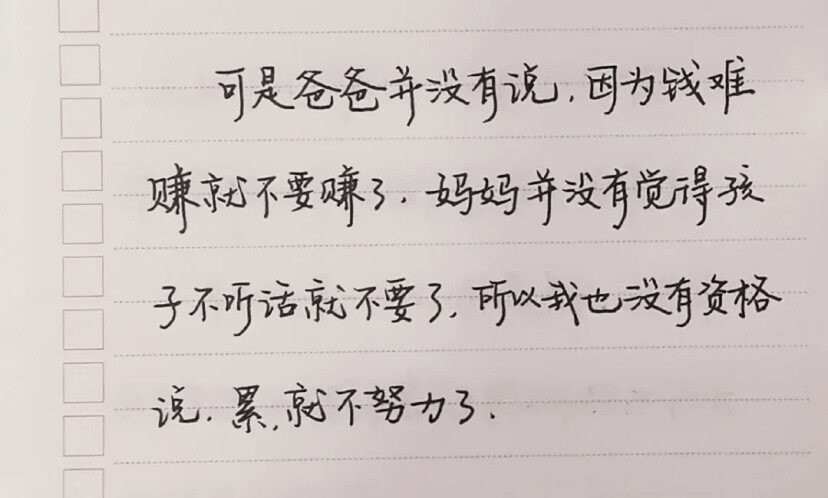 可是爸爸并没有说.因为钱难
赚就不要赚了.妈妈并没有觉得孩
子不听话就不要了.所以我也没有资格
说.累.就不努力了.